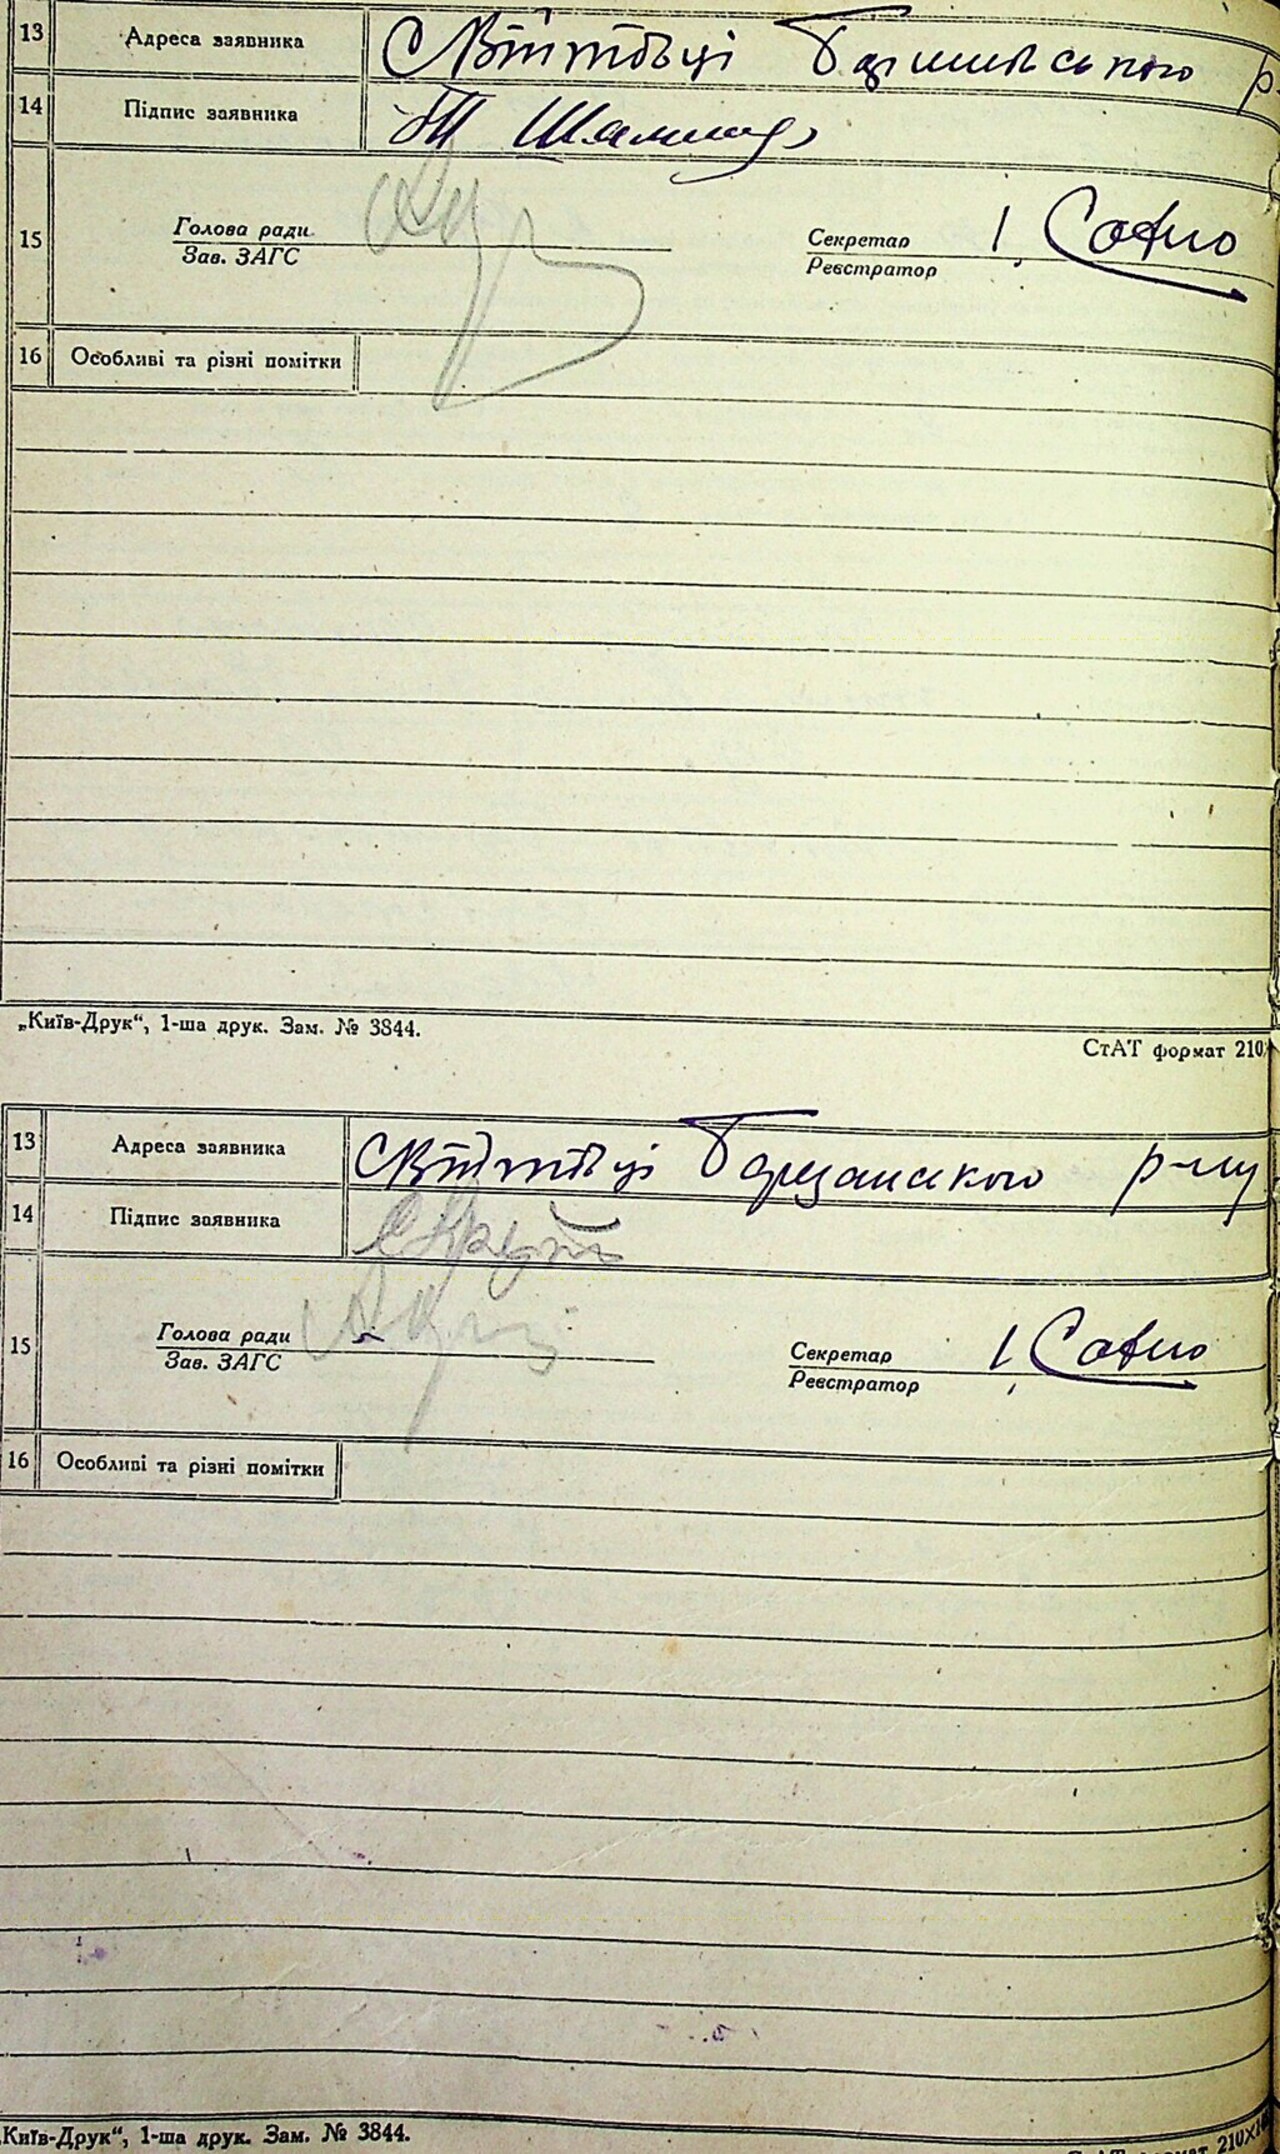 13 Адреса заявника С Війтовці Баришівського р.
14 Підпис заявника
15 Голова ради Секретар
Зав. ЗАГС Реєстратор
16 Особливі та різні помітки
„Київ-Друк“, 1-ша друк. Зам. № 3844.
СтАТ формат 210
13 Адреса заявника С Війтовці Березанського р-ну
14 Підпис заявника
15 Голова ради Секретар
Зав. ЗАГС Реєстратор
16 Особливі та різні помітки
„Київ-Друк“, 1-ша друк. Зам. № 3844.
СтАТ формат 210×